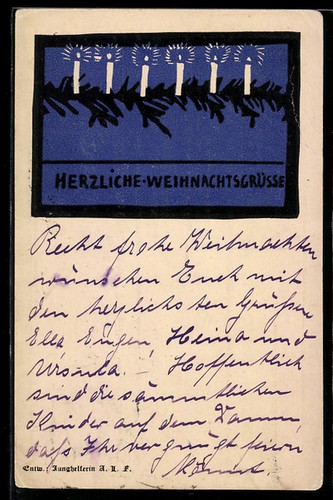 HERZLICHE·WEIHNACHTSGRÜSSE
Recht frohe Weihnachten
wünschen Euch mit
den herzlichsten Grüssen
Ella Eugen, Heina und
Ursula. – Hoffentlich
sind die sämmtlichen
Kinder auf dem Damm,
dass Ihr vergnügt feiern
könnt
Entw.: Junghelferin A. L. F.